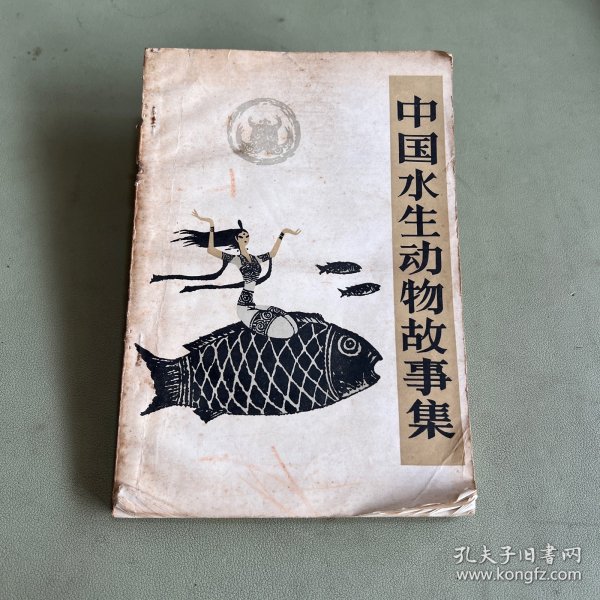 中国水生动物故事集
孔夫子旧书网
www.kongfz.com